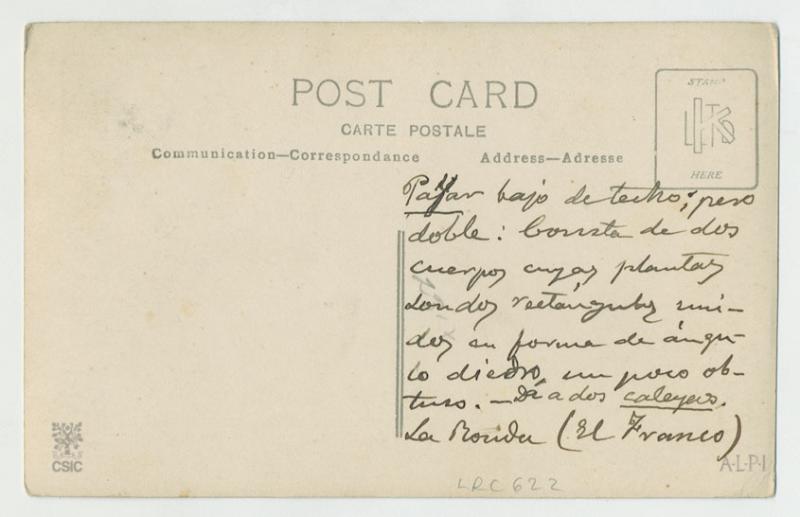 POST CARD
CARTE POSTALE
Communication—Correspondance
Address—Adresse
STAMP
HERE
Payar bajo de techo; pero
doble: Consta de dos
cuerpos cuyas plantas
son dos rectángulos uni-
dos en forma de ángu-
lo diedro, un poco ob-
tuso. — Da a dos caleyas.
La Ronda (El Franco)
CSIC
A·L·P·I
LRC622